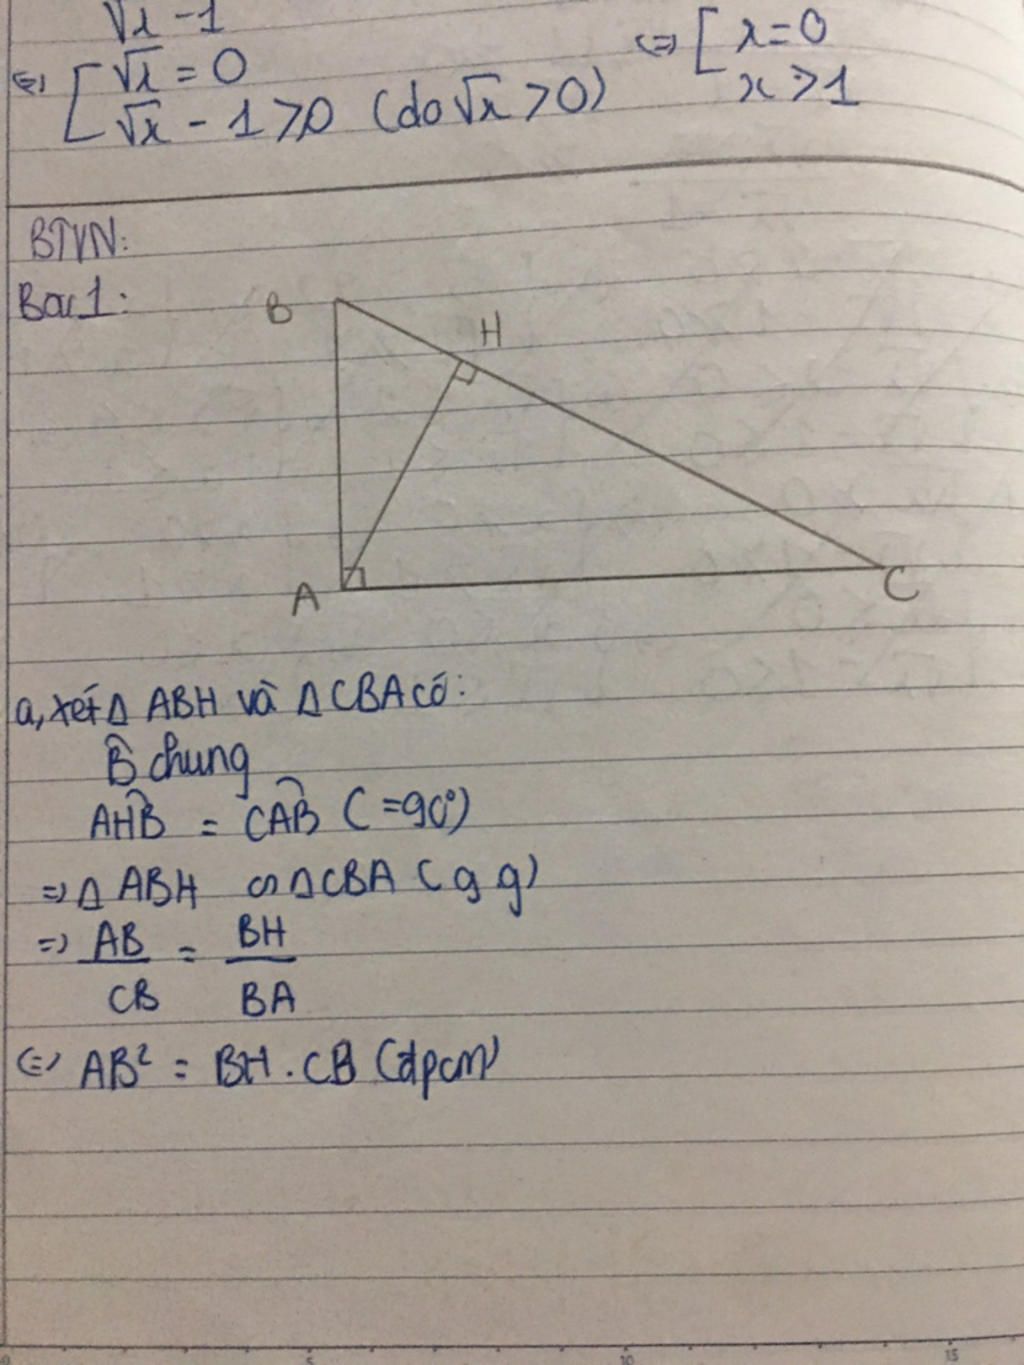 √x - 1
⇔ [ √x = 0
√x - 1 > 0 (do √x > 0)
⇔ [ x = 0
x > 1
BTVN:
Bài 1:
B
H
A
C
a, xét Δ ABH và Δ CBA có:
B̂ chung
AĤB = CÂB ( = 90°)
⇒ Δ ABH ∽ Δ CBA ( g g )
⇒ AB/CB = BH/BA
⇔ AB² = BH . CB (đpcm)
5
10
15